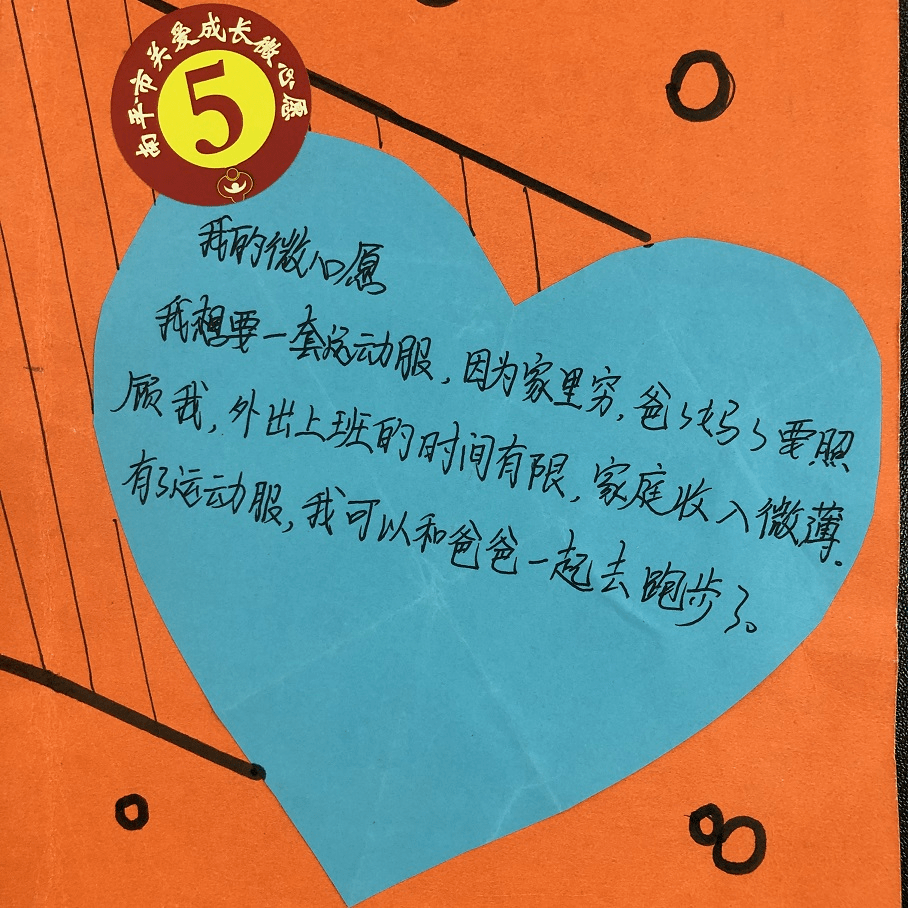 南平市关爱成长微心愿
5
我的微心愿
我想要一套运动服,因为家里穷,爸爸妈妈要照
顾我,外出上班的时间有限,家庭收入微薄.
有了运动服,我可以和爸爸一起去跑步了。